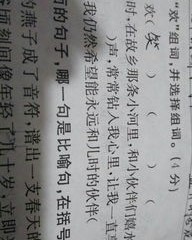 "欢"组词，并选择组词。(4分)
欢(笑) ( ) (
时，在故乡那条小河里，和小伙伴们嬉水
)声，常常钻入我心里，让我一直
我仍然希望能永远和儿时的伙伴(
面的句子，哪一句是比喻句，在括号
的燕子成了音符，谱出一支春天的
顷刻间像年轻了几十岁，立即